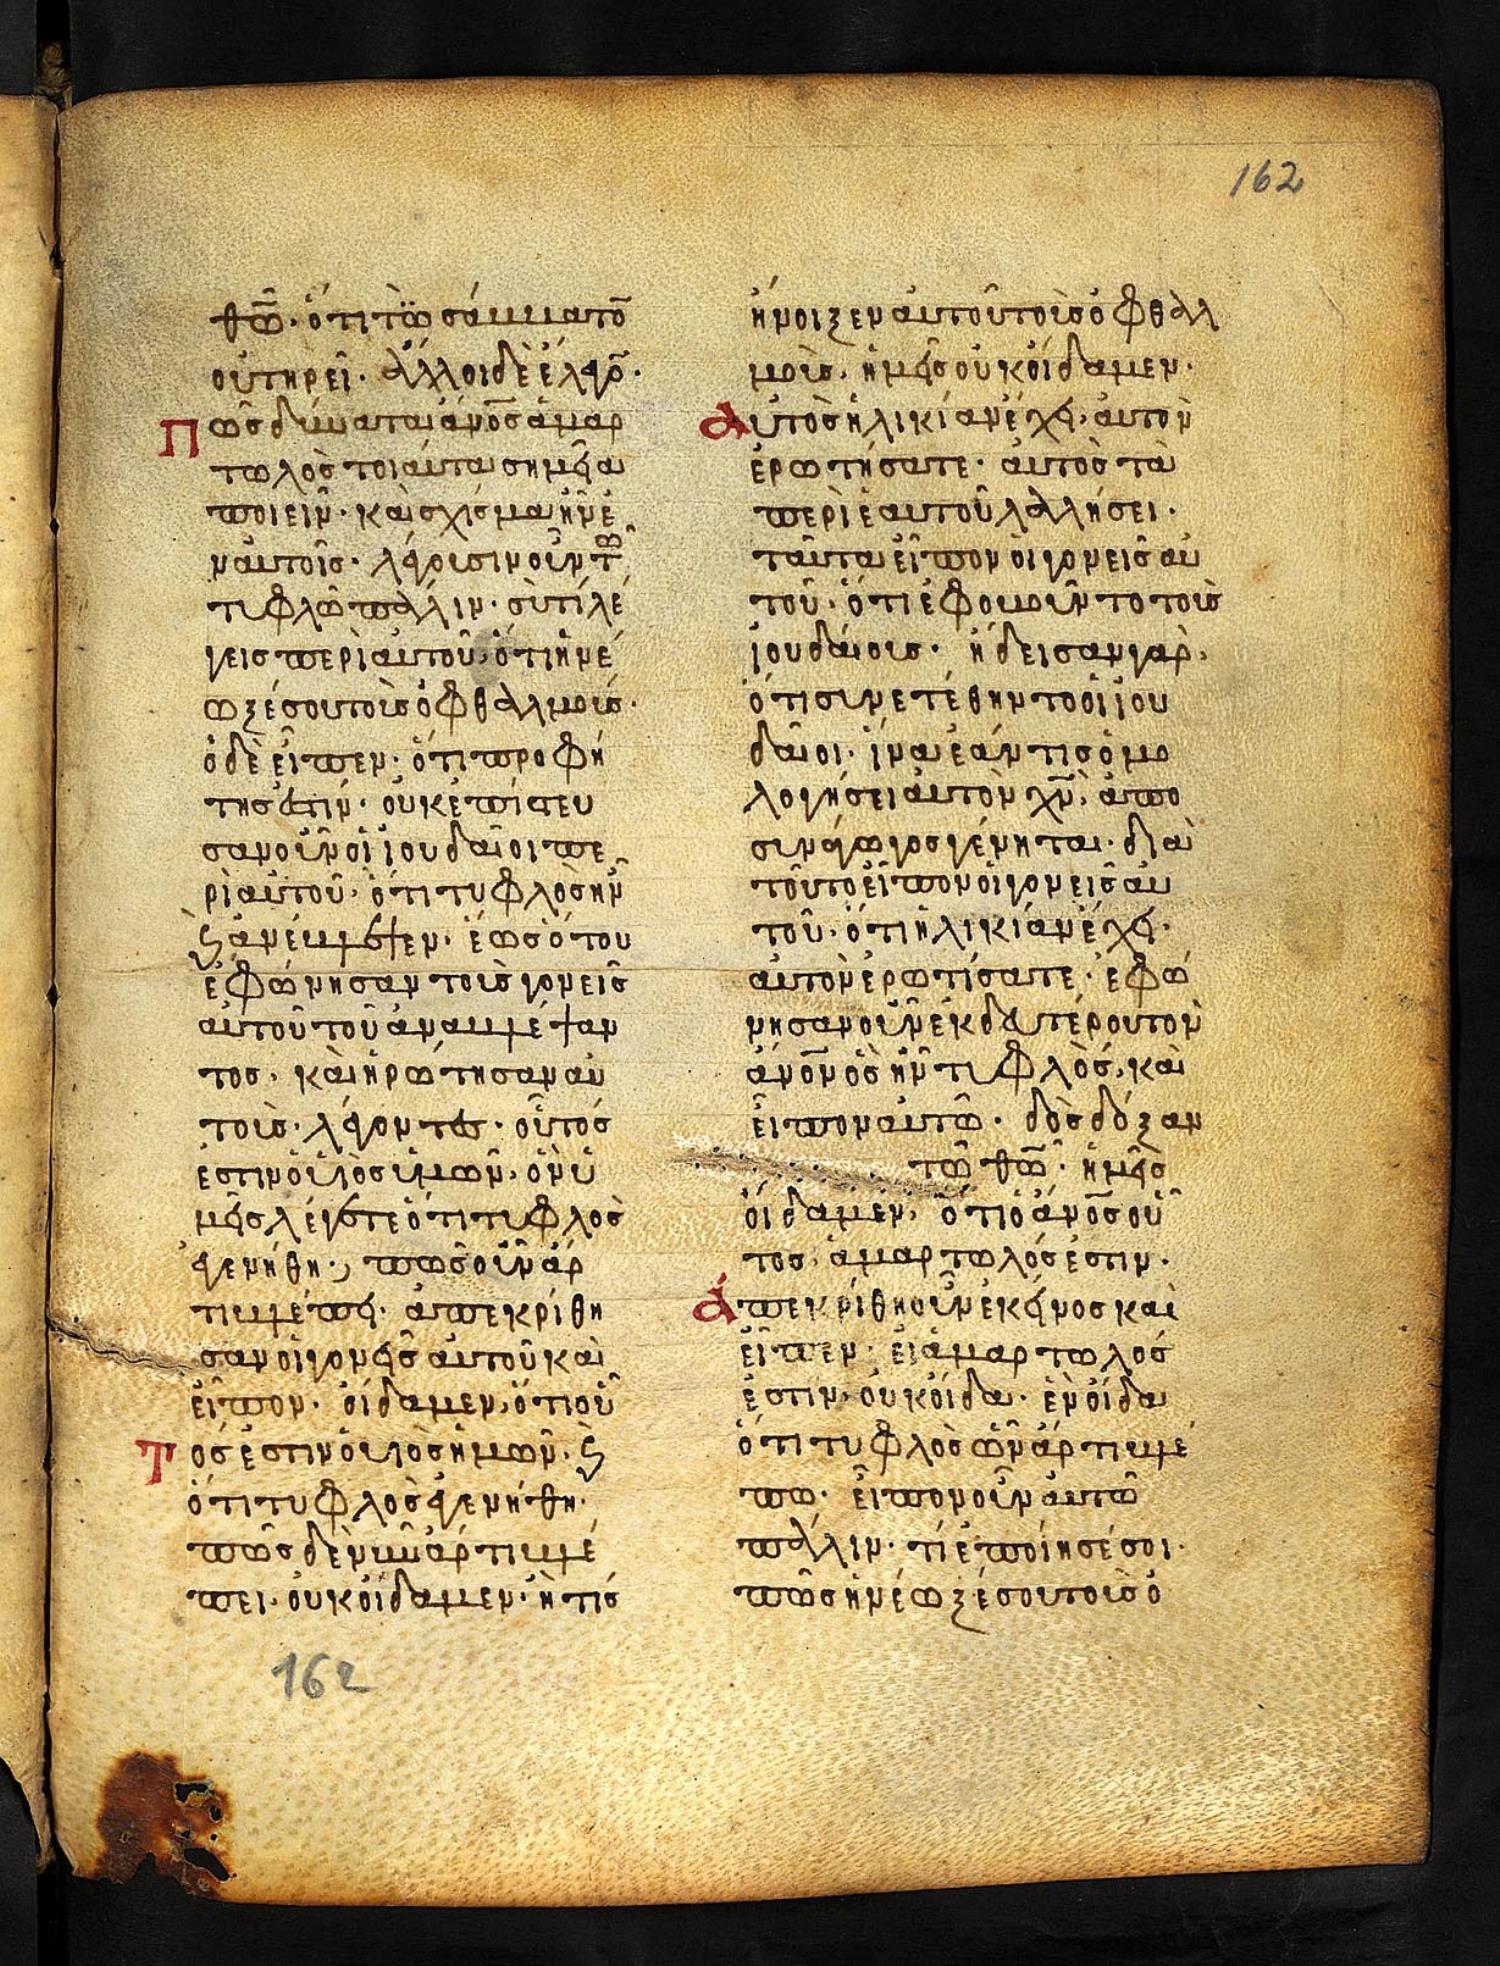 162
θῶ̅· ὅτι τὸ σάββατο̅
οὐ τηρεῖ· ἄλλοι δὲ ἔλεγο̅·
Πῶς δύναται ἄνο̅ς ἁμαρ
τωλὸς τοιαῦτα σημεῖα
ποιεῖν· καὶ σχίσμα ἦν ἐ
ν αὐτοῖς· λέγουσιν οὖν τῶ
τυφλῶ πάλιν· σὺ τί λέ
γεις περὶ αὐτοῦ, ὅτι ἠνέ
ωξέ σου τοὺς ὀφθαλμούς·
ὁ δὲ εἶπεν· ὅτι προφή
της ἐστίν· οὐκ ἐπίστευ
σαν οὖν οἱ ἰουδαῖοι πε
ρὶ αὐτοῦ· ὅτι τυφλὸς ἦν
ϗ ἀνέβλεψεν· ἕως ὅτου
ἐφώνησαν τοὺς γονεῖς
αὐτοῦ τοῦ ἀναβλέψαν
τος· καὶ ἠρώτησαν αὐ
τοὺς· λέγοντες· οὗτός
ἐστιν ὁ υἱὸς ὑμῶν, ὃν ὑ
μεῖς λέγετε ὅτι τυφλὸς
ἐγεννήθη·, πῶς οὖν ἄρ
τι βλέπει· ἀπεκρίθη
σαν οἱ γονεῖς αὐτοῦ καὶ
εἶπον· οἴδαμεν, ὅτι οὗ
Τός ἐστιν ὁ υἱὸς ἡμῶν· ϗ
ὅτι τυφλὸς ἐγενήθη·
πῶς δὲ νῦν ἄρτι βλέ
πει· οὐκ οἴδαμεν· ἢ τίς
ἤνοιξεν αὐτοῦ τοὺς ὀφθαλ
μοὺς, ἡμεῖς οὐκ οἴδαμεν·
Αὐτὸς ἡλικίαν ἔχει, αὐτὸν
ἐρωτήσατε· αὐτὸς τὰ
περὶ ἑαυτοῦ λαλήσει·
ταῦτα εἶπον οἱ γονεῖς αὐ
τοῦ· ὅτι ἐφοβοῦντο τοὺς
ἰουδαίους· ἤδεισαν γὰρ,
ὅτι συνετέθηντο οἱ ἰου
δαῖοι· ἵνα ἐάν τις ὁμο
λογήσει αὐτὸν χν̅, ἀπο
συνάγωγος γένηται· διὰ
τοῦτο εἶπον οἱ γονεῖς αὐ
τοῦ· ὅτι ἡλικίαν ἔχει·
αὐτὸν ἐρωτίσατε· ἐφώ
νησαν οὖν ἐκ δευτέρου τὸν
ἄνο̅ν ὃς ἦν τυφλὸς, καὶ
εἶπον αὐτῶ· δὸς δόξαν
τῶ θῶ̅· ἡμεῖς
οἴδαμεν, ὅτι ὁ ἄνο̅ς οὗ
τος, ἁμαρτωλός ἐστιν·
Ἀπεκρίθη οὖν ἐκεῖνος καὶ
εἶπεν· εἰ ἁμαρτωλός
ἐστιν, οὐκ οἶδα· ἓν οἶδα
ὅτι τυφλὸς ὢν ἄρτι βλέ
πω· εἶπον οὖν αὐτῶ
πάλιν· τί ἐποίησέ σοι·
πῶς ἠνέωξέ σου τοὺς ὀ
162